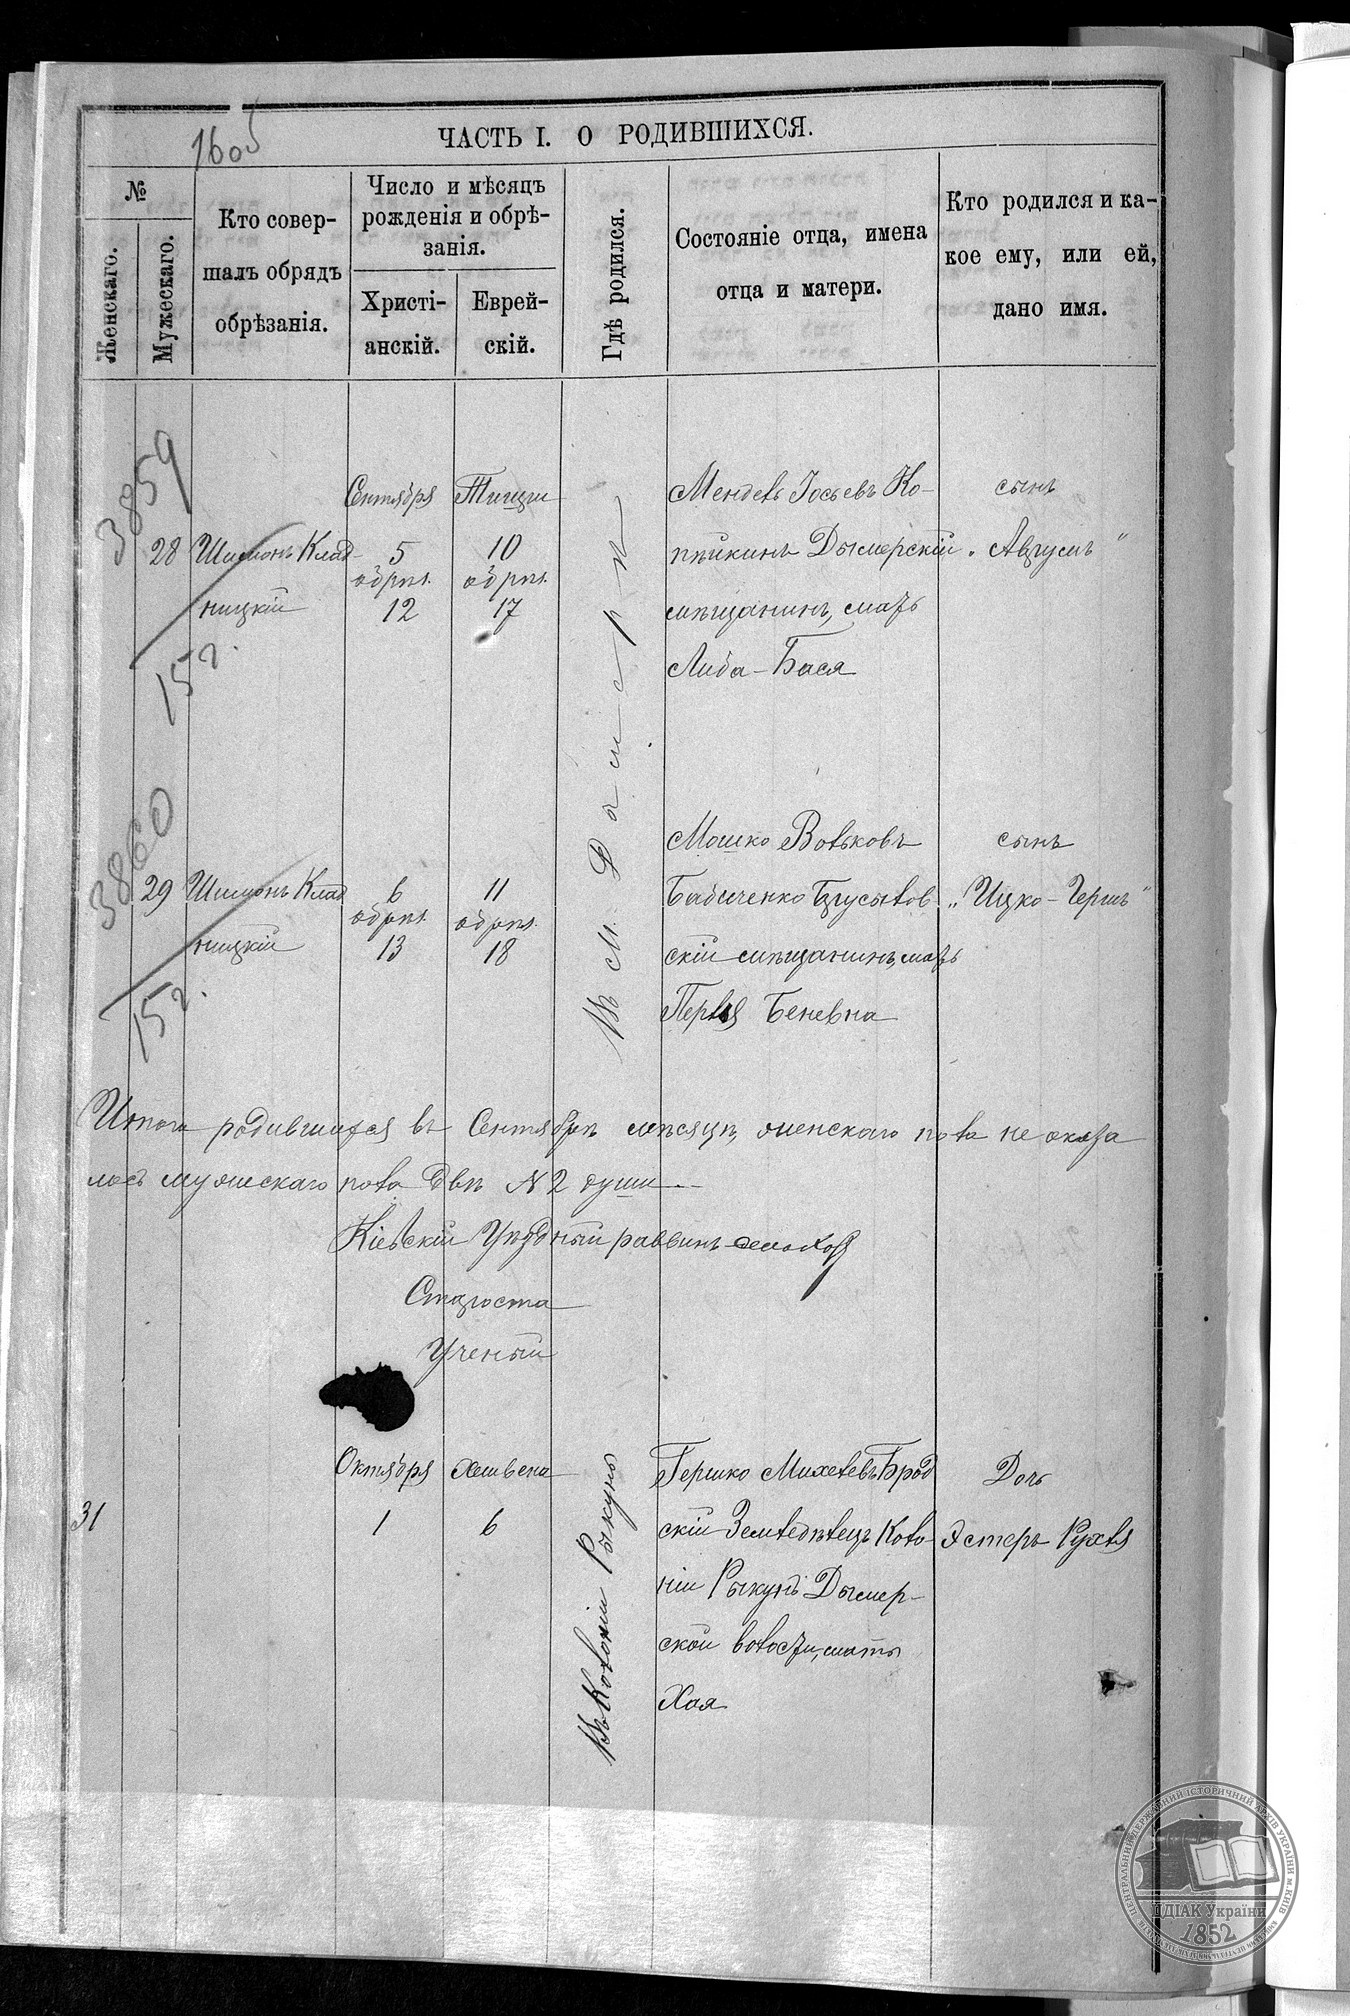 1605
ЧАСТЬ I. О РОДИВШИХСЯ.
№
Женскаго.
Мужескаго.
Кто совер-
шалъ обрядъ
обрѣзанія.
Число и мѣсяцъ
рожденія и обрѣ-
занія.
Христі-
анскій.
Еврей-
скій.
Гдѣ родился.
Состояніе отца, имена
отца и матери.
Кто родился и ка-
кое ему, или ей,
дано имя.
3859
28
Шимонъ Клад
ницкій
152.
Сентября
5
обрѣз.
12
Тишри
10
обрѣз.
17
Въ м. Дымерѣ
Мендель Іосьевъ Ко-
пѣйкинъ Дымерскій
мѣщанинъ, мать
Либа-Бася
сынъ
„Авгумъ"
3860
29
Шимонъ Клад
ницкій
152.
6
обрѣз.
13
11
обрѣз.
18
Мошко Вольковъ
Бабиченко Брусилов
скій мѣщанинъ, мать
Перля Беневна
сынъ
„Ицко-Гершъ"
Итого родившихся въ Сентябрѣ мѣсяцѣ, женскаго пола не оказа
лось мужескаго пола двѣ N 2 души
Кіевскій Уѣздный раввинъ
Староста
Ученый
31
Октября
1
Хешвена
6
Въ Колоніи Рыкунь
Гершко Михелевъ Брод
скій Земледѣлецъ Коло-
ніи Рыкунь Дымер-
ской волости, мать
Хая
Дочь
Эстеръ Рухля
ЦЕНТРАЛЬНИЙ ДЕРЖАВНИЙ ІСТОРИЧНИЙ АРХІВ УКРАЇНИ М. КИЇВ
ЦДІАК України
1852